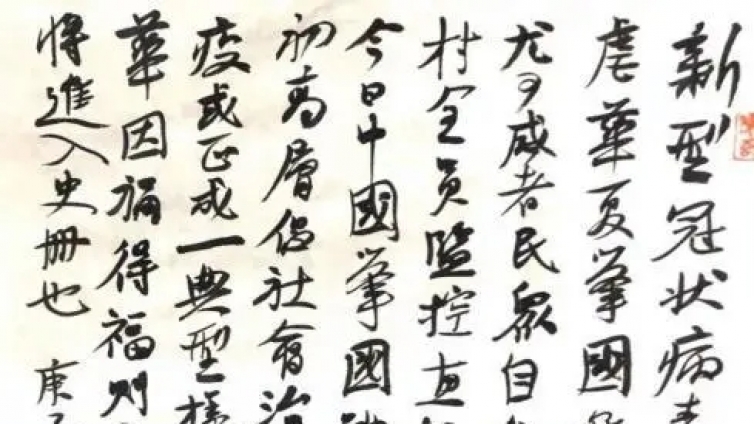 新型冠状病毒
虐華夏举國
尤可感者民衆自
村全員監控直
今日中國举國
初高層促社會治
疫或正成一典型樣
華因禍得福则
將進入史册也 庚子